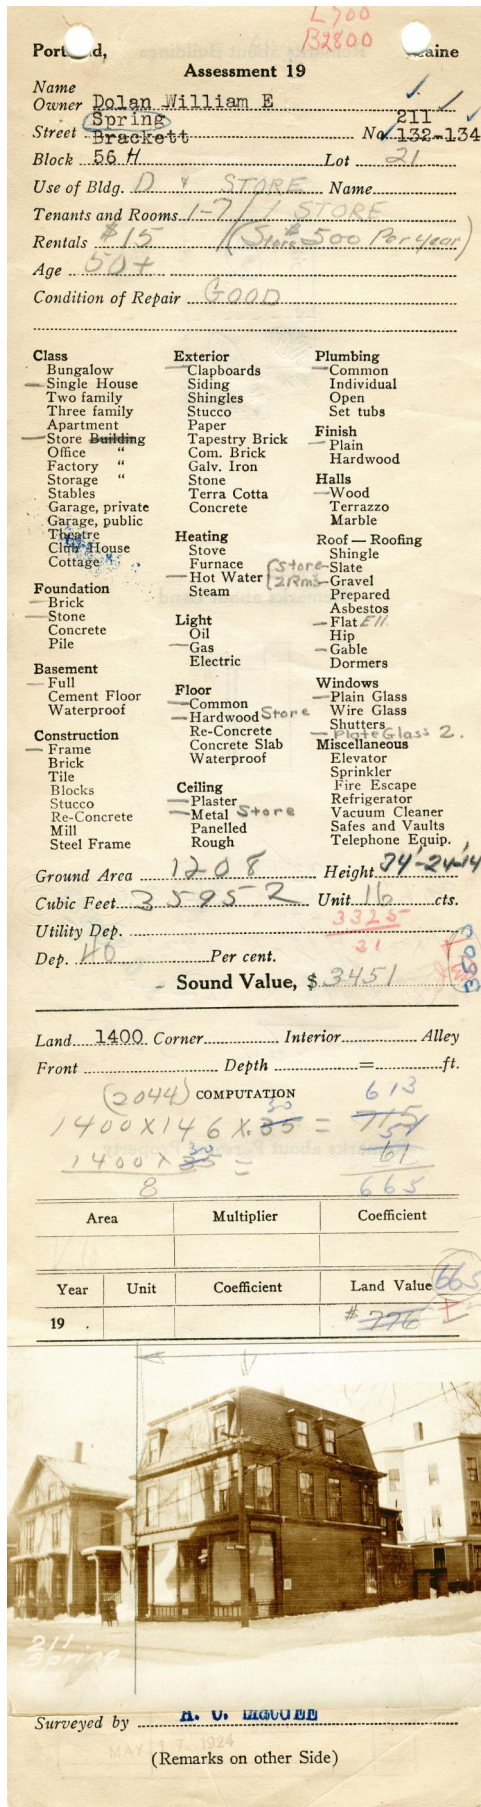 L 700
B 2800
Portland, Maine
Assessment 19
Name
Owner Dolan William E
Spring 211
Street Brackett No. 132-134
Block 56 H Lot 21
Use of Bldg. D & STORE Name
Tenants and Rooms 1-7 / 1 STORE
Rentals $15 (Store $500 Per year)
Age 50+
Condition of Repair GOOD
Class
Bungalow
Single House
Two family
Three family
Apartment
Store Building
Office "
Factory "
Storage "
Stables
Garage, private
Garage, public
Theatre
Club House
Cottage
Foundation
Brick
Stone
Concrete
Pile
Basement
Full
Cement Floor
Waterproof
Construction
Frame
Brick
Tile
Blocks
Stucco
Re-Concrete
Mill
Steel Frame
Exterior
Clapboards
Siding
Shingles
Stucco
Paper
Tapestry Brick
Com. Brick
Galv. Iron
Stone
Terra Cotta
Concrete
Heating
Stove
Furnace
Hot Water { Store
2 Rms
Steam
Light
Oil
Gas
Electric
Floor
Common
Hardwood Store
Re-Concrete
Concrete Slab
Waterproof
Ceiling
Plaster
Metal Store
Panelled
Rough
Plumbing
Common
Individual
Open
Set tubs
Finish
Plain
Hardwood
Halls
Wood
Terrazzo
Marble
Roof — Roofing
Shingle
Slate
Gravel
Prepared
Asbestos
Flat Ell
Hip
Gable
Dormers
Windows
Plain Glass
Wire Glass
Shutters
Plate Glass 2.
Miscellaneous
Elevator
Sprinkler
Fire Escape
Refrigerator
Vacuum Cleaner
Safes and Vaults
Telephone Equip.
Ground Area 1208 Height 34'-24-14
Cubic Feet 35952 Unit 16 cts.
3325
Utility Dep. 21
Dep. 40 Per cent. 3500
Sound Value, $ 3451
Land 1400 Corner Interior Alley
Front Depth = ft.
(2044) COMPUTATION 613
1400 X 146 X .35 30 = 715
51
1400 X 35 30 = 61
8 665
Area Multiplier Coefficient
Year Unit Coefficient Land Value 665
19 . $ 776
211
Spring
Surveyed by A. C. MAGEE
MAY 17 1924
(Remarks on other Side)